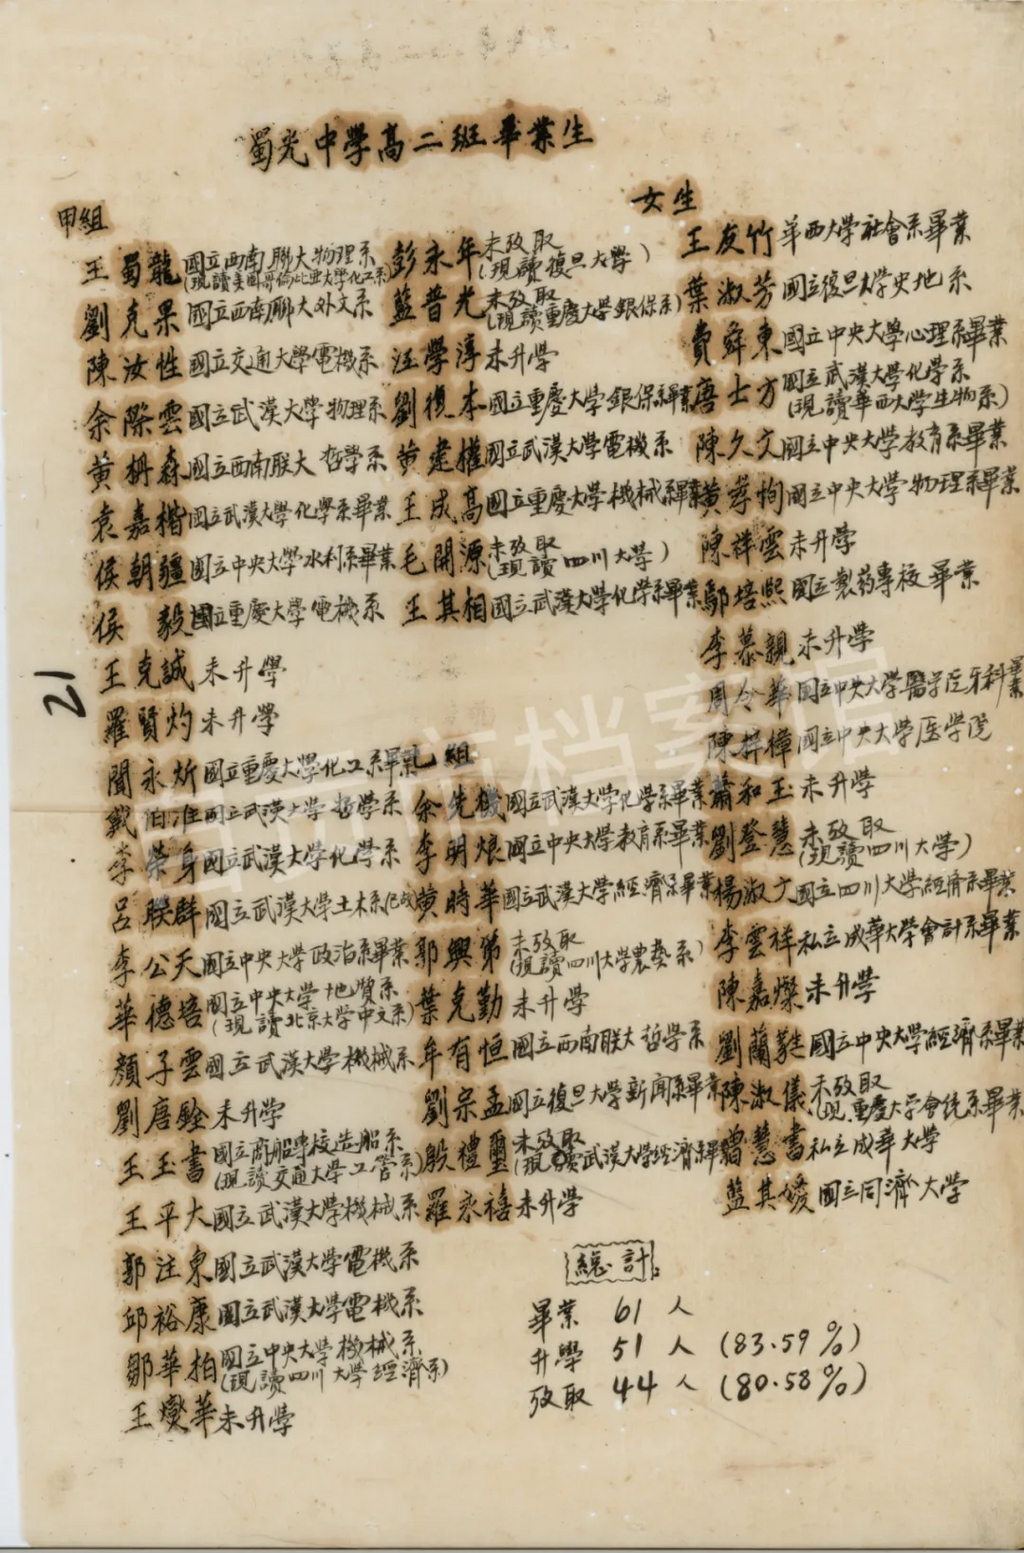 蜀光中學高二班畢業生
甲組
王蜀龍 國立西南聯大物理系
(現讀美國哥倫比亞大學化工系)
劉克果 國立西南聯大外文系
陳汝性 國立交通大學電機系
余際雲 國立武漢大學物理系
黃枬森 國立西南联大哲學系
袁嘉楷 國立武漢大學化學系畢業
侯朝疆 國立中央大學水利系畢業
侯毅 國立重慶大學電機系
王克誠 未升學
羅賢灼 未升學
聞永炘 國立重慶大學化工系畢業
戴泊淮 國立武漢大學哲學系
李榮身 國立武漢大學化學系
呂联群 國立武漢大學土木系(已故)
李公天 國立中央大學政治系畢業
華德培 國立中央大學地質系
(現讀北京大學中文系)
顏子雲 國立武漢大學機械系
劉唐 未升學
王玉書 國立商船專校造船系
(現讀交通大學工管系)
王平大 國立武漢大學機械系
郭注東 國立武漢大學電機系
邱裕康 國立武漢大學電機系
鄒華柏 國立中央大學機械系
(現讀四川大學經濟系)
王燮華 未升學
彭永年 未攷取
(現讀復旦大學)
藍普光 未攷取
(現讀重慶大學銀保系)
汪學淳 未升學
劉復本 國立重慶大学銀保系畢業
黃建權 國立武漢大學電機系
王成高 國立重慶大學機械系畢業
毛開源 未攷取
(現讀四川大學)
王其相 國立武漢大學化學系畢業
乙組
余先機 國立武漢大學化學系畢業
李明烺 國立中央大學教育系畢業
黃時華 國立武漢大學經濟系畢業
郭興第 未攷取
(現讀四川大學農藝系)
葉克勤 未升學
牟有恒 國立西南联大哲學系
劉宗孟 國立復旦大學新闻系畢業
殷禮璽 未攷取
(現讀武漢大學經濟系畢業)
羅永禧 未升學
女生
王友竹 華西大學社會系畢業
葉淑芳 國立復旦大學史地系
費舜東 國立中央大學心理系畢業
唐士方 國立武漢大學化學系
(現讀華西大學生物系)
陳久文 國立中央大學教育系畢業
黃蓴恂 國立中央大學物理系畢業
陳祥雲 未升學
鄢培熙 國立製葯專校畢業
李慕親 未升學
周令華 國立中央大學醫学院牙科畢業
陳梓樟 國立中央大学医学院
蕭和玉 未升學
劉登慧 未攷取
(現讀四川大學)
楊淑文 國立四川大學經濟系畢業
李雲祥 私立成華大學會計系畢業
陳嘉燦 未升學
劉蘭蕤 國立中央大學經濟系畢業
陳淑儀 未攷取
(現重慶大学會統系畢業
曾慧書 私立成華大學
藍其嬡 國立同濟大學
總計:
畢業 61 人
升學 51 人 (83.59%)
攷取 44 人 (80.58%)
21